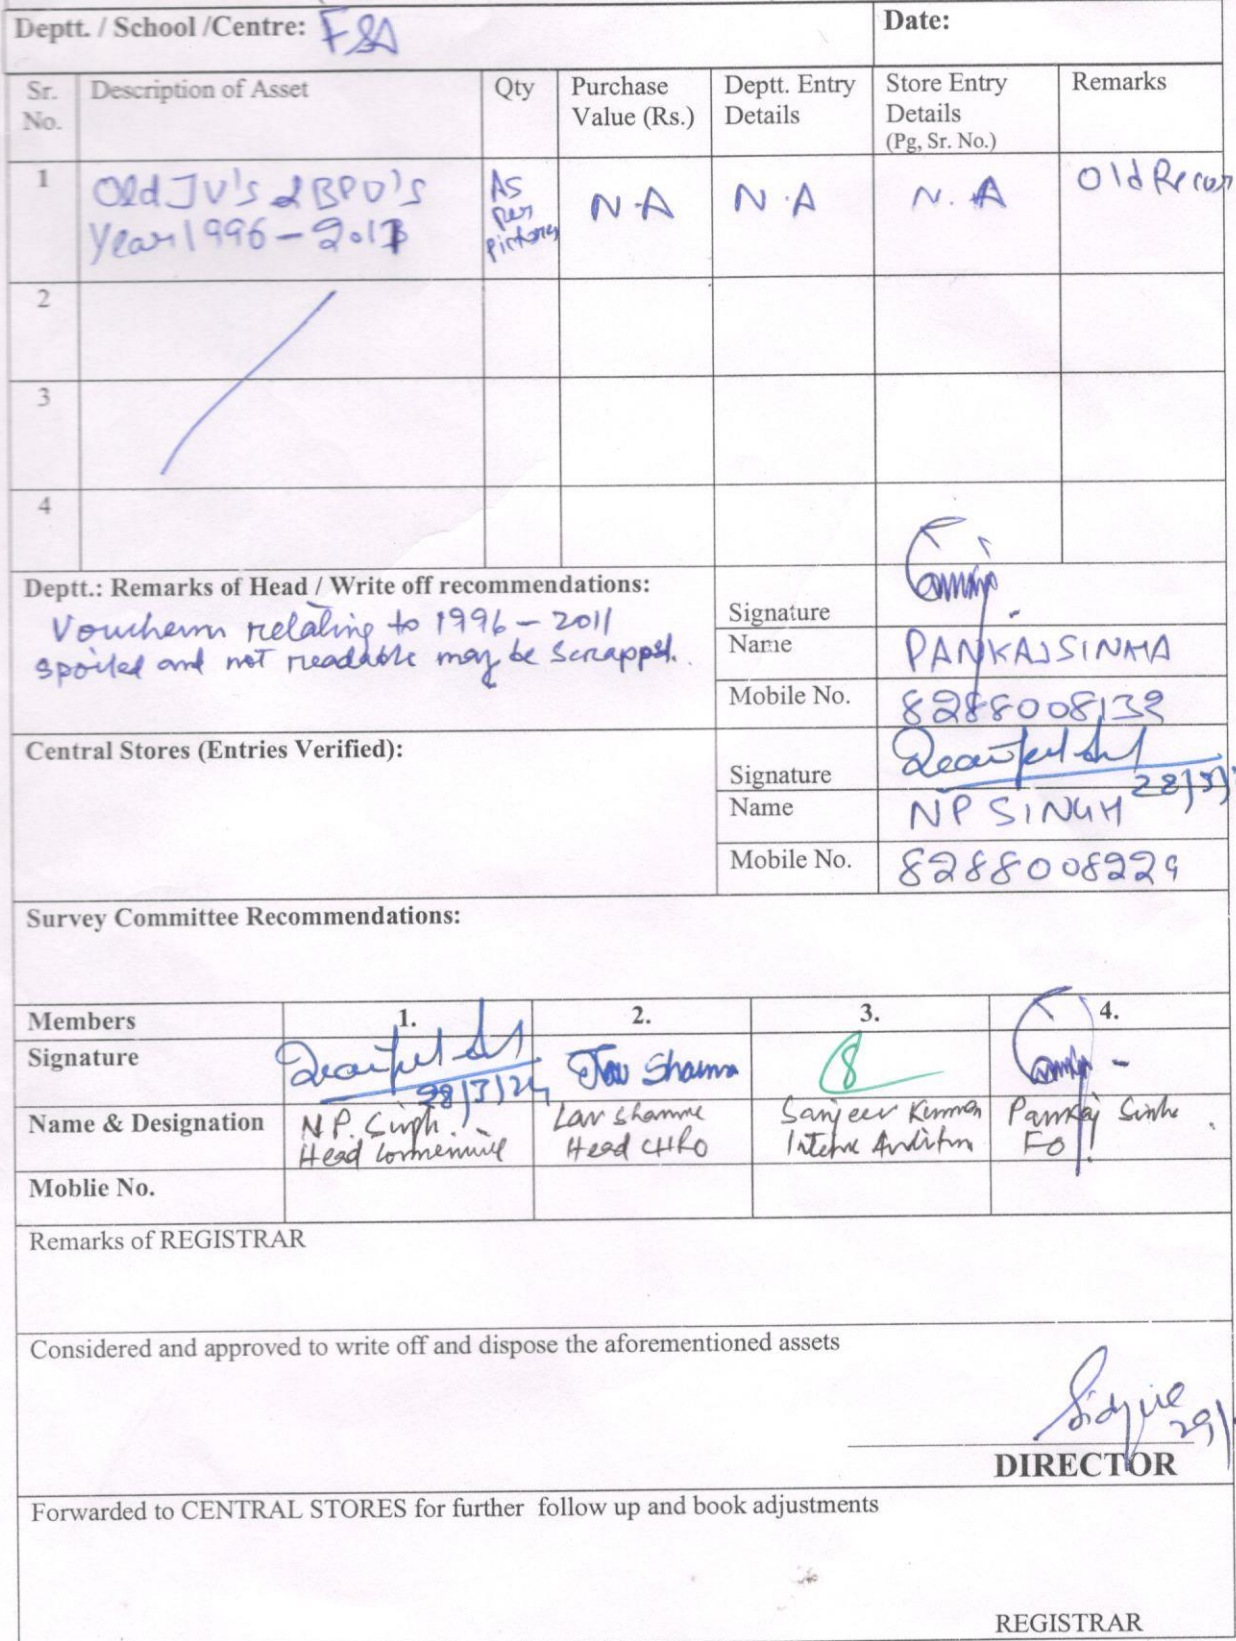 Deptt. / School /Centre: F&A Date:
Sr. No. Description of Asset Qty Purchase Value (Rs.) Deptt. Entry Details Store Entry Details (Pg, Sr. No.) Remarks
1 Old JV's & BPV's As per N.A N.A N.A Old
Year 1996 -
2
3
4
Deptt.: Remarks of Head / Write off recommendations:
relating to 1996 - 2011
spoiled and not readable may be
Signature
Name PANKAJ SINHA
Mobile No. 8288008132
Central Stores (Entries Verified):
Signature
Name NP SINGH
Mobile No. 8288008229
Survey Committee Recommendations:
Members 1. 2. 3. 4.
Signature 28/3/24 Lav Sharma
Name & Designation N.P. Singh Lav Sharma Sanjeev Kumar Pankaj Sinha
Head Head FO
Moblie No.
Remarks of REGISTRAR
Considered and approved to write off and dispose the aforementioned assets
DIRECTOR
Forwarded to CENTRAL STORES for further follow up and book adjustments
REGISTRAR